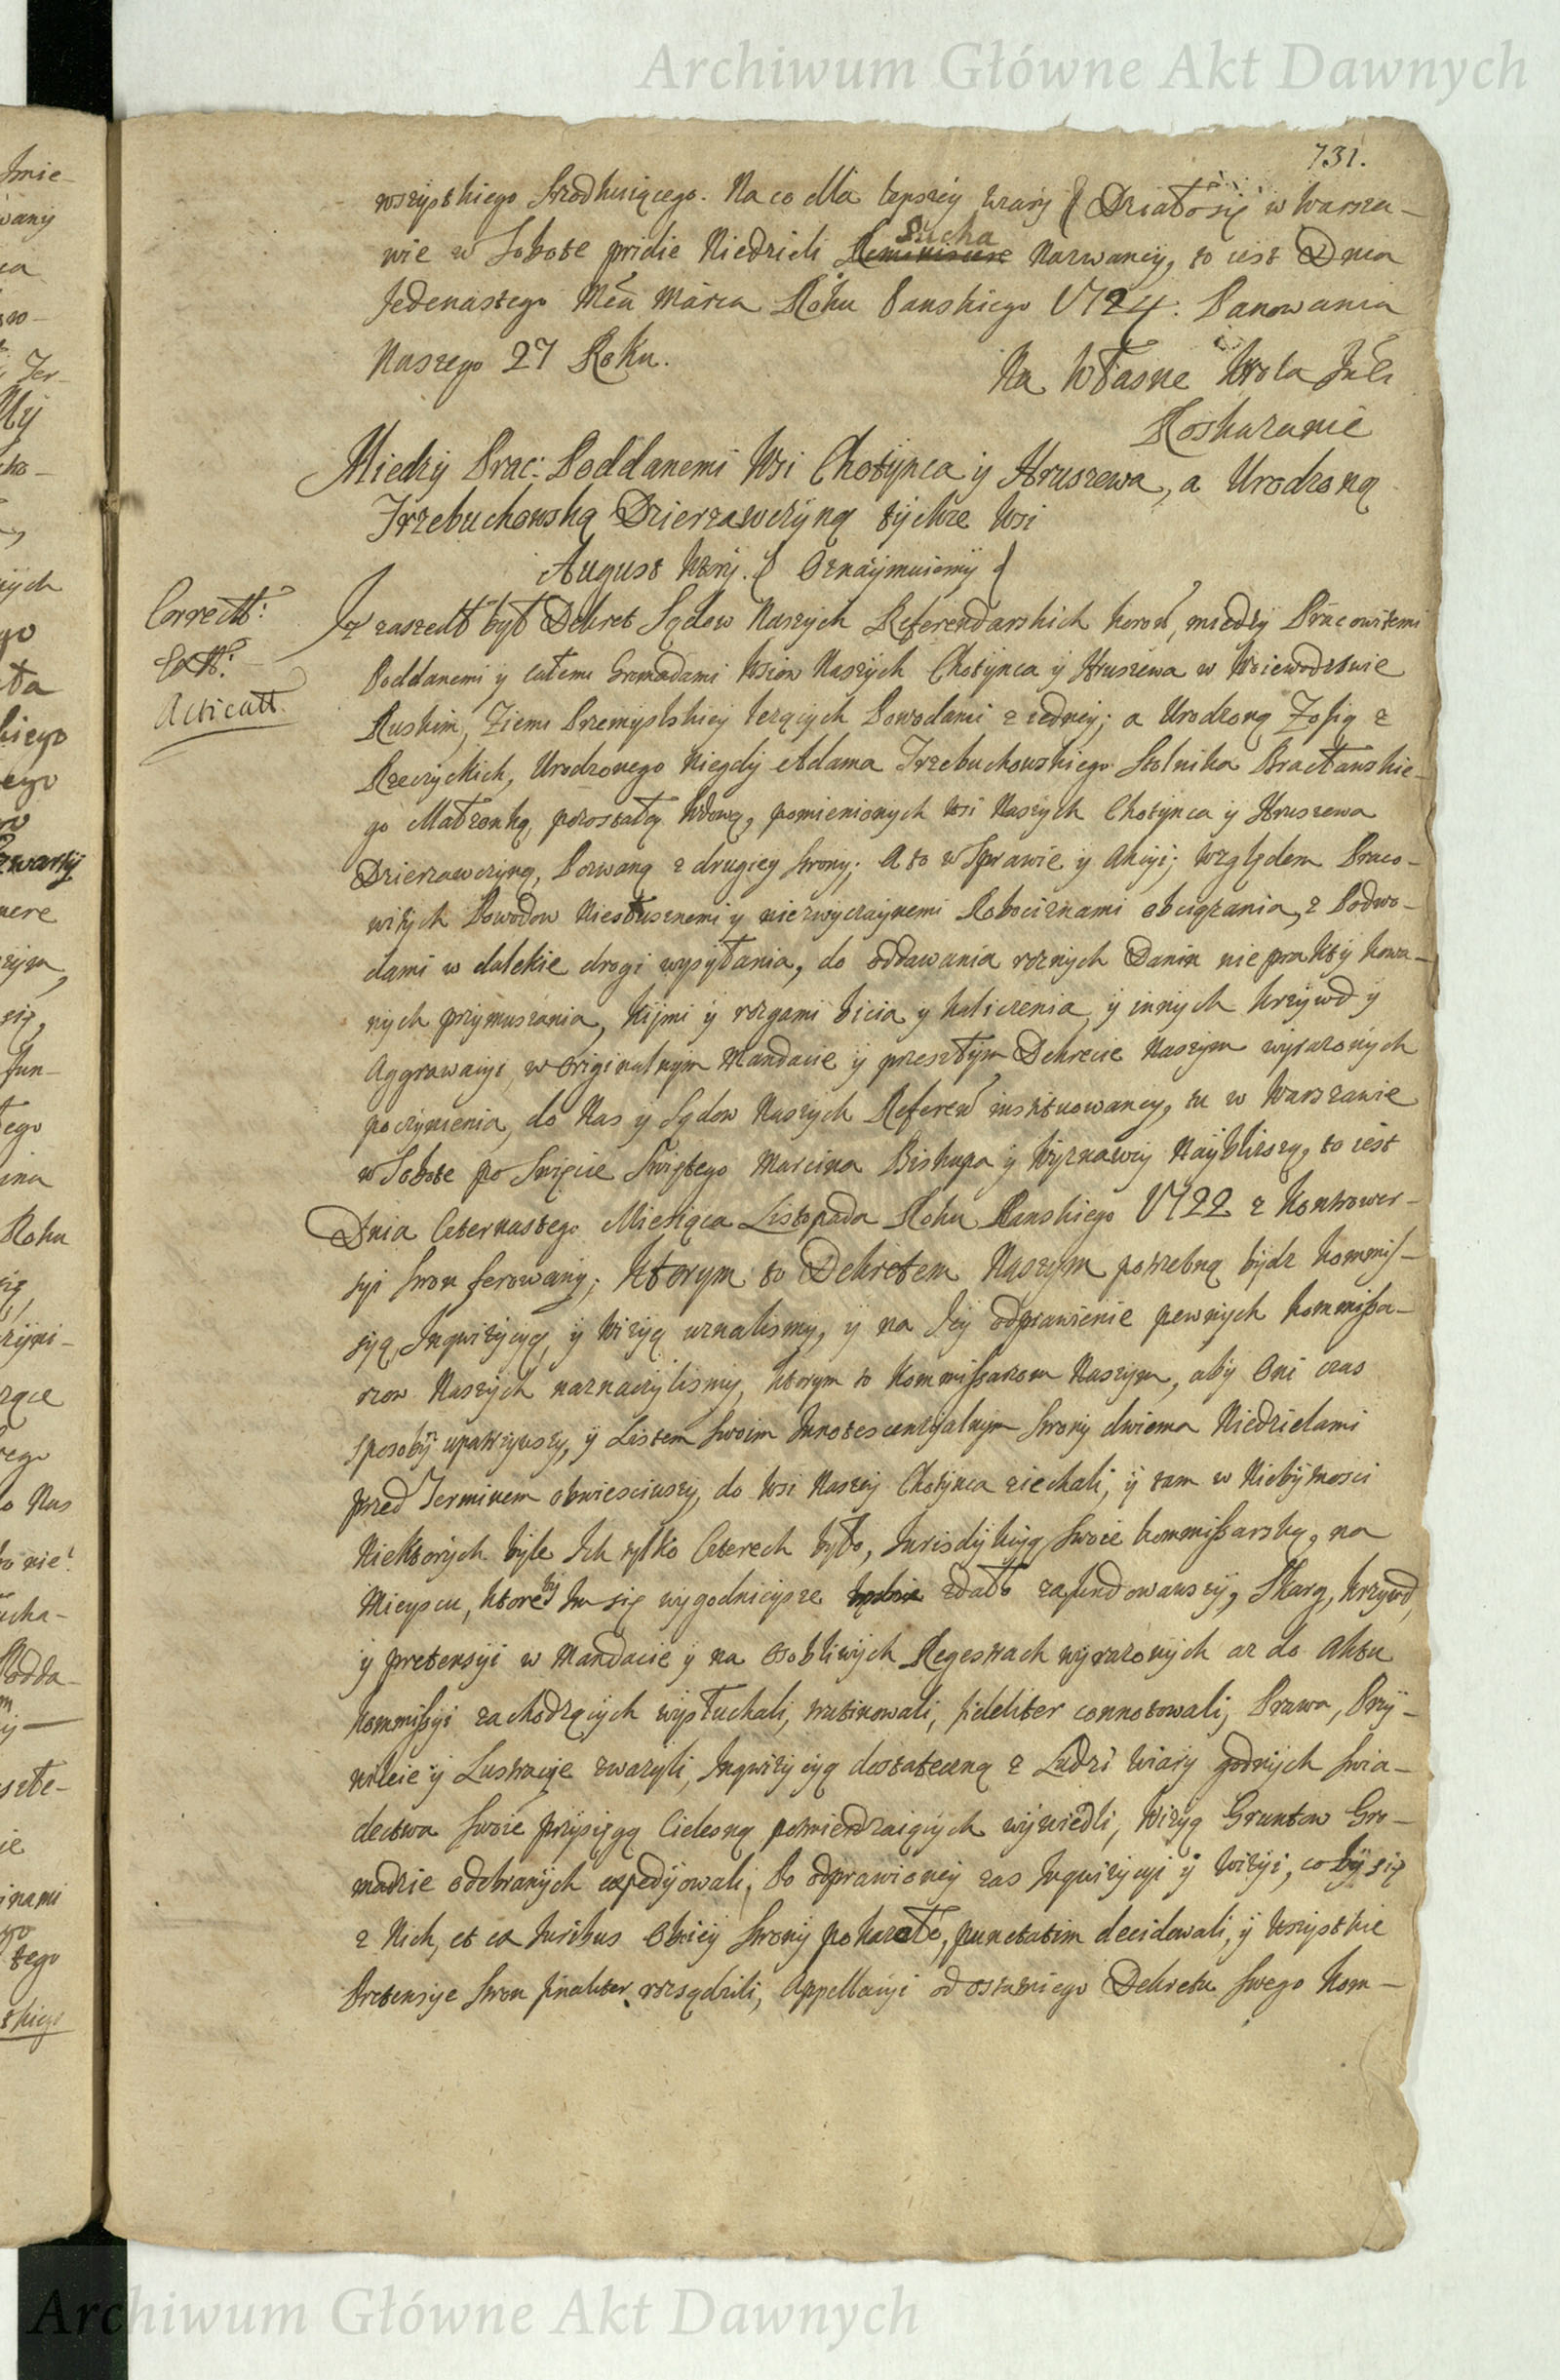 Archiwum Główne Akt Dawnych
731.
wszystkiego szrodkuiącego. Na co dla lepszey wiary &c. Działosię w Warsza-
wie w Sobotę pridie Niedzieli Sucha Nazwaney, to iest Dnia
Jedenastego Mca Marca Roku Panskiego 1724. Panowania
Naszego 27 Roku.
Na Własne Krola JMci
Roskazanie
Miedzy Prac: Poddanemi Wsi Chotynca y Hruszewa, a Urodzoną
Trzebuchowską Dzierzawczyną tychze Wsi
August Wtory. &c. Oznaymuiemy &c.
Correctt:
Extt:
Acticatt.
Iz zaszedł był Dekret Sądow Naszych Referendarskich koron, między Pracowitemi
Poddanemi y całemi Gromadami Wsiow Naszych Chotynca y Hruszewa w Woiewodztwie
Ruskim, Ziemi Przemyslskiey lezących Powodami z iedney; a Urodzoną Zofią z
Rzeczyckich, Urodzonego Niegdy Adama Trzebuchowskiego Stolnika Bracławskie-
go Małzonką, pozostałą Wdową, pomienionych Wsi Naszych Chotynca y Hruszewa
Dzierzawczyną, Pozwaną z drugiey strony; A to w Sprawie y Akcyi; względem Praco-
witych Powodow Niesłusznemi y niezwyczaynemi Robociznami obciązania, z Podwo-
dami w dalekie drogi wysyłania, do oddawania roznych Danin nie praktykowa-
nych przymuszania, kijmi y rozgami bicia y kaliczenia, y innych krzywd y
Aggrawacyi, w originalnym Mandacie y przeszłym Dekrecie Naszym wyrazonych
poczynienia, do Nas y Sądow Naszych Referen instituowaney, tu w Warszawie
w Sobotę po Swięcie Swiętego Marcina Biskupa y Wyznawcy Nayblizszą, to iest
Dnia Czternastego Miesiąca Listopada Roku Panskiego 1722 z Kontrower-
syi stron ferowany; Ktorym to Dekretem Naszym potrzebną bydz kommis-
syą, Inqwizycyą, y Wizyą uznalismy, y na Jey odprawienie pewnych kommissa-
rzow Naszych naznaczylismy, ktorym to Kommissarzom Naszym, aby Oni czas
sposobny upatrzywszy, y Listem swoim Innotescentyalnym strony dwiema Niedzielami
przed Terminem obwiesciwszy, do Wsi Naszey Chotynca ziechali, y tam w Niebytnosci
Niektorych byle Ich tylko Czterech było, Jurisdykcyą swoie kommissarską, na
Mieyscu, ktoreby Im się wygodnieysze zdało zafundowawszy, Skarg, krzywd,
y pretensyi w Mandacie y na osobliwych Regestrach wyrazonych az do Aktu
kommissyi zachodzących wysłuchali, trutinowali, fideliter connotowali, Prawa, Przy-
wileie y Lustracye zwazyli, Inqwizycyą dostateczną z Ludzi wiary godnych swia-
dectwa swoie przysięgą Cielesną potwierdzaiących wywiedli, Wizyą Gruntow Gro-
madzie odebranych expedyowali, Po odprawioney zas Inqwizycyi y Wizyi, co by się
z Nich, et ex Juribus Obiey strony pokazało, punctatim decidowali, y wszystkie
Pretensye stron finaliter rozsądzili, Appellacyi od ostatniego Dekretu swego Kom-
Archiwum Główne Akt Dawnych